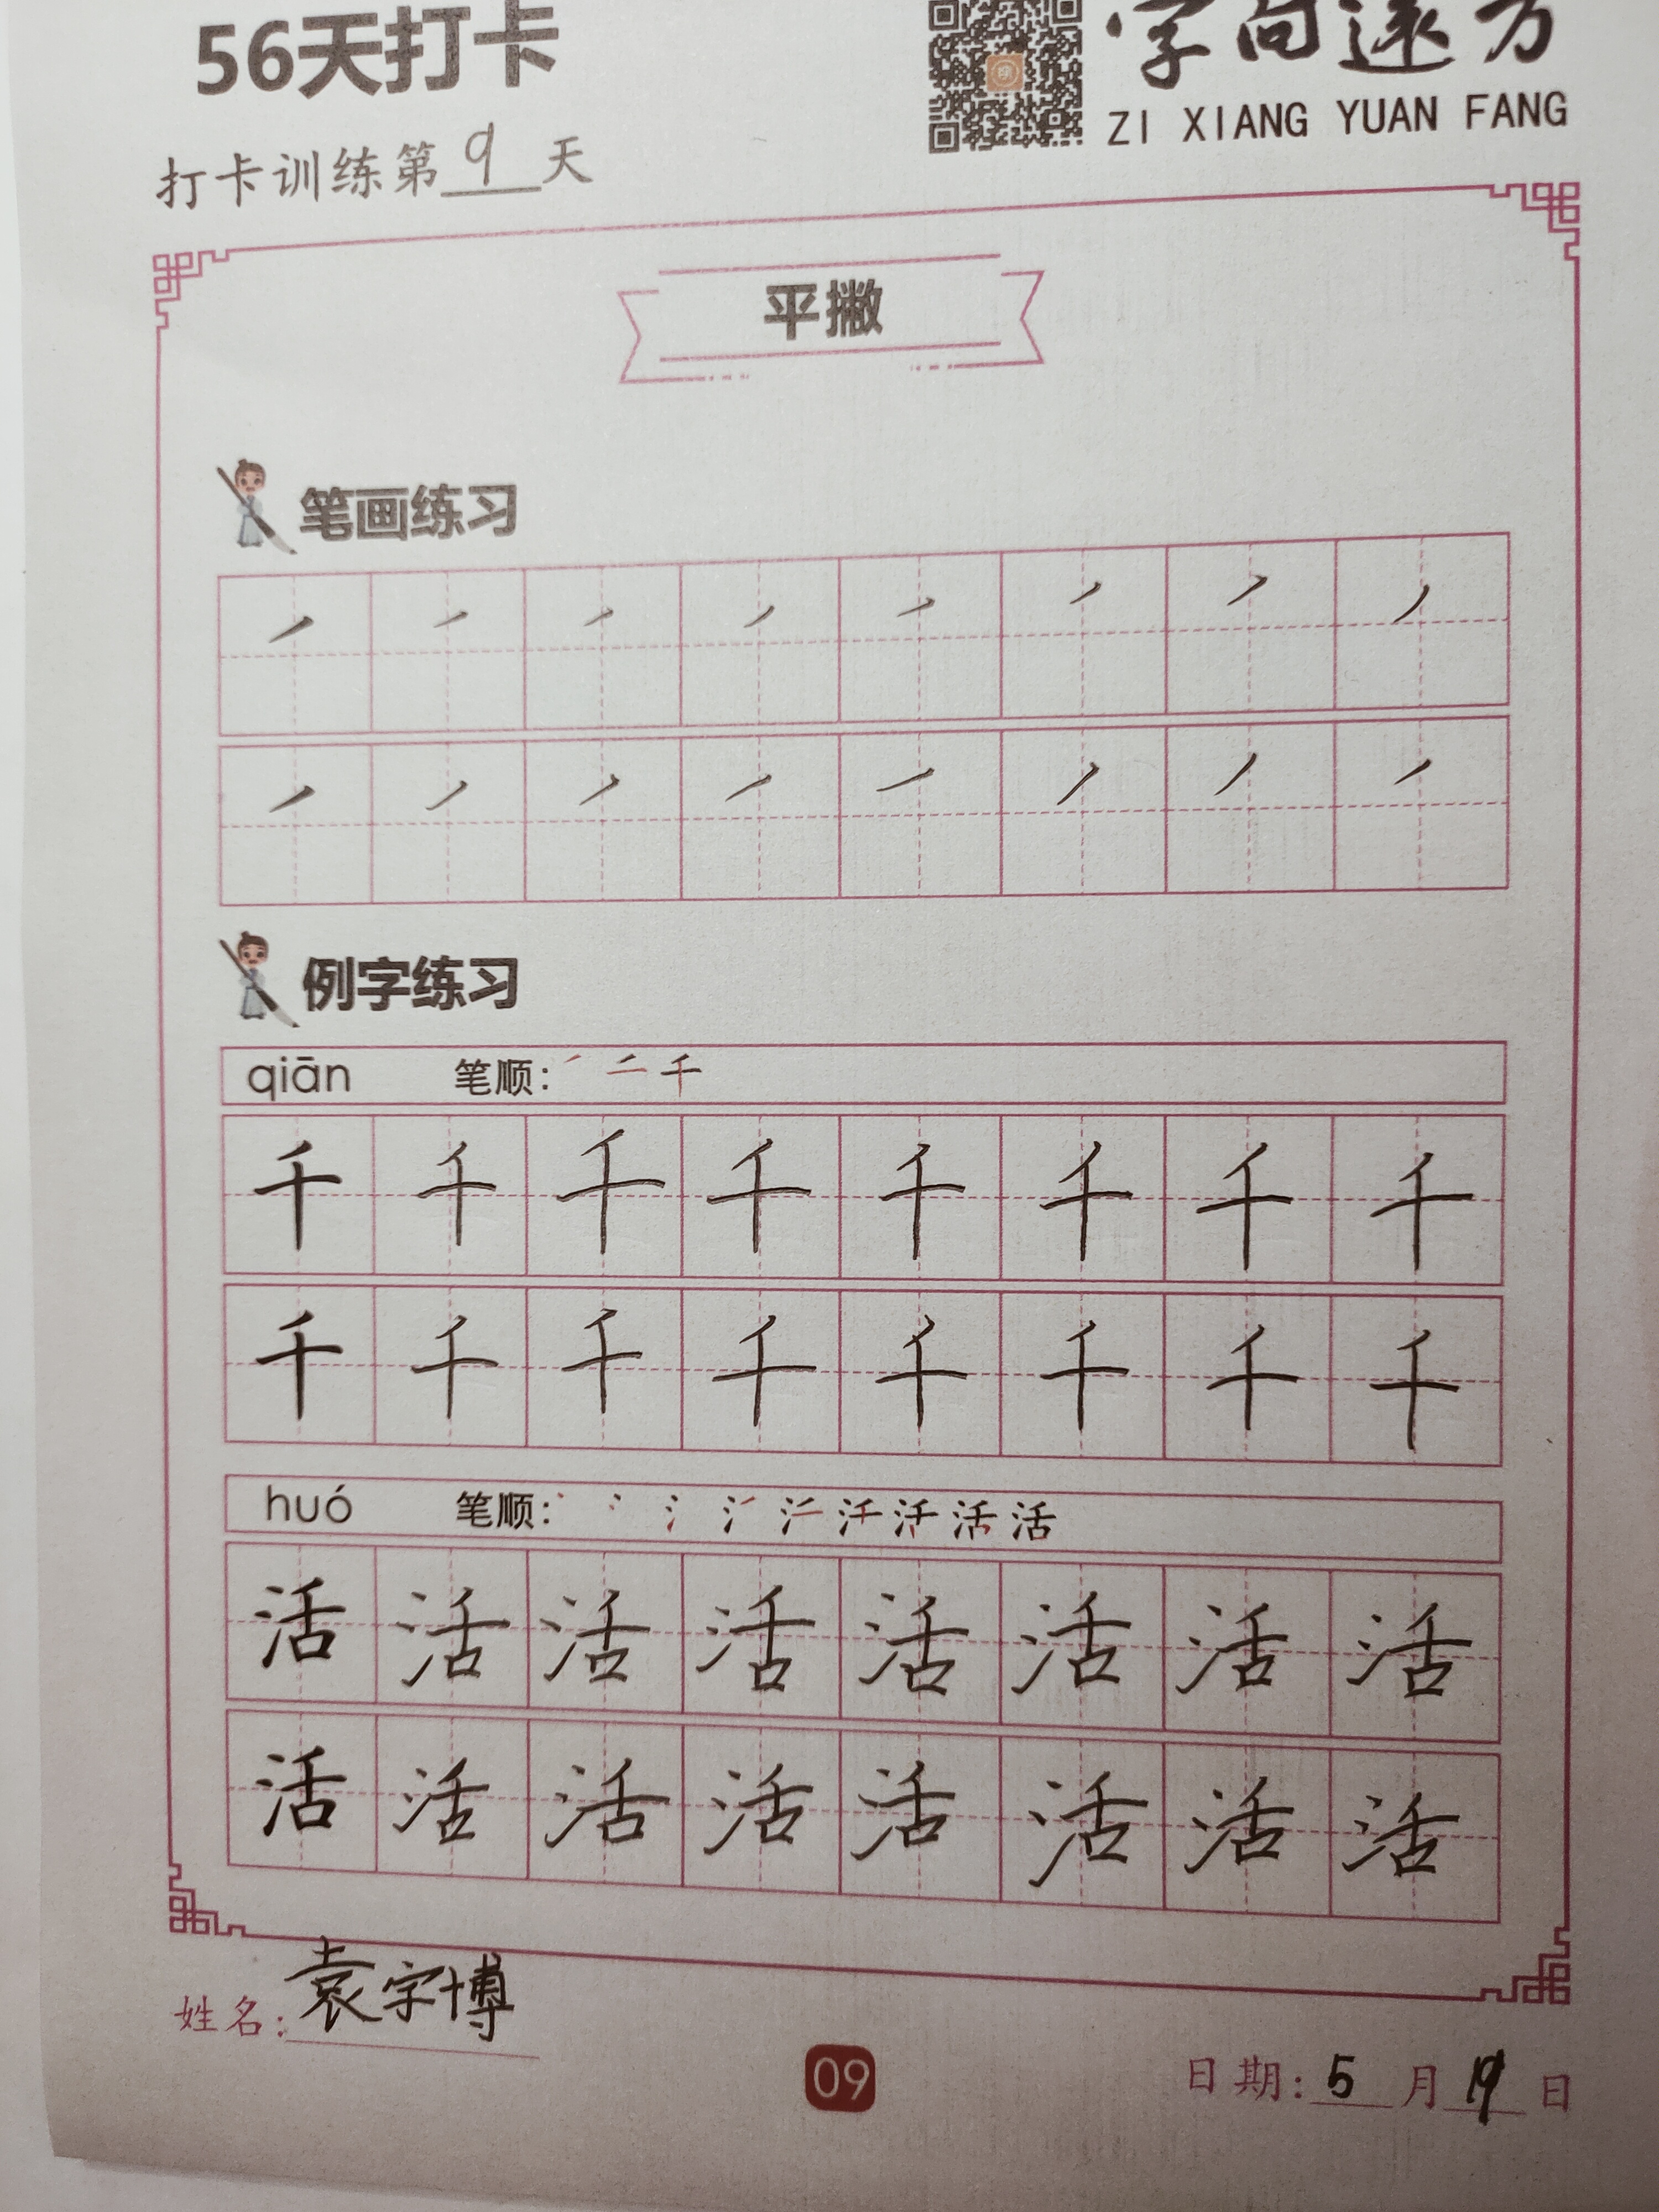 56天打卡
字向远方
ZI XIANG YUAN FANG
打卡训练第9天
平撇
笔画练习
例字练习
qiān 笔顺: 千
千 千 千 千 千 千 千 千
千 千 千 千 千 千 千 千
huó 笔顺: 活
活 活 活 活 活 活 活 活
活 活 活 活 活 活 活 活
姓名: 袁宇博
09
日期: 5月19日